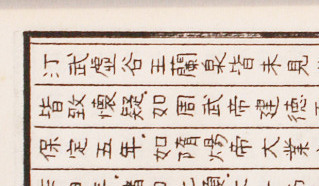 汀武虛谷王蘭泉皆未見
皆致懷疑.如周武帝建德
保定五年.如隋煬帝大業